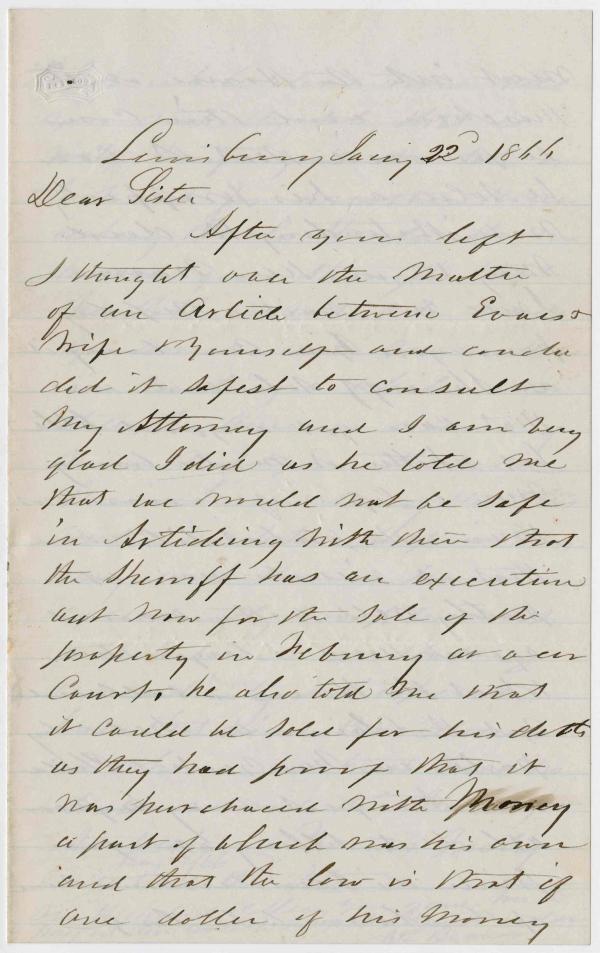 Lewisburg Jany 22d 1866
Dear Sister
After you left
I thought over the Matter
of an Article between Evans &
Wife & Myself and conclu
ded it safest to consult
My Attorney and I am very
glad I did as he told me
that we would not be safe
in Articleing with them that
the Sherriff has an execution
out now for the Sale of the
property in Febuary at our
Court, he also told Me that
it could be sold for his debts
as they had proof that it
was purchaced with Money
a part of which was his own
and that the law is that if
one doller of his Money